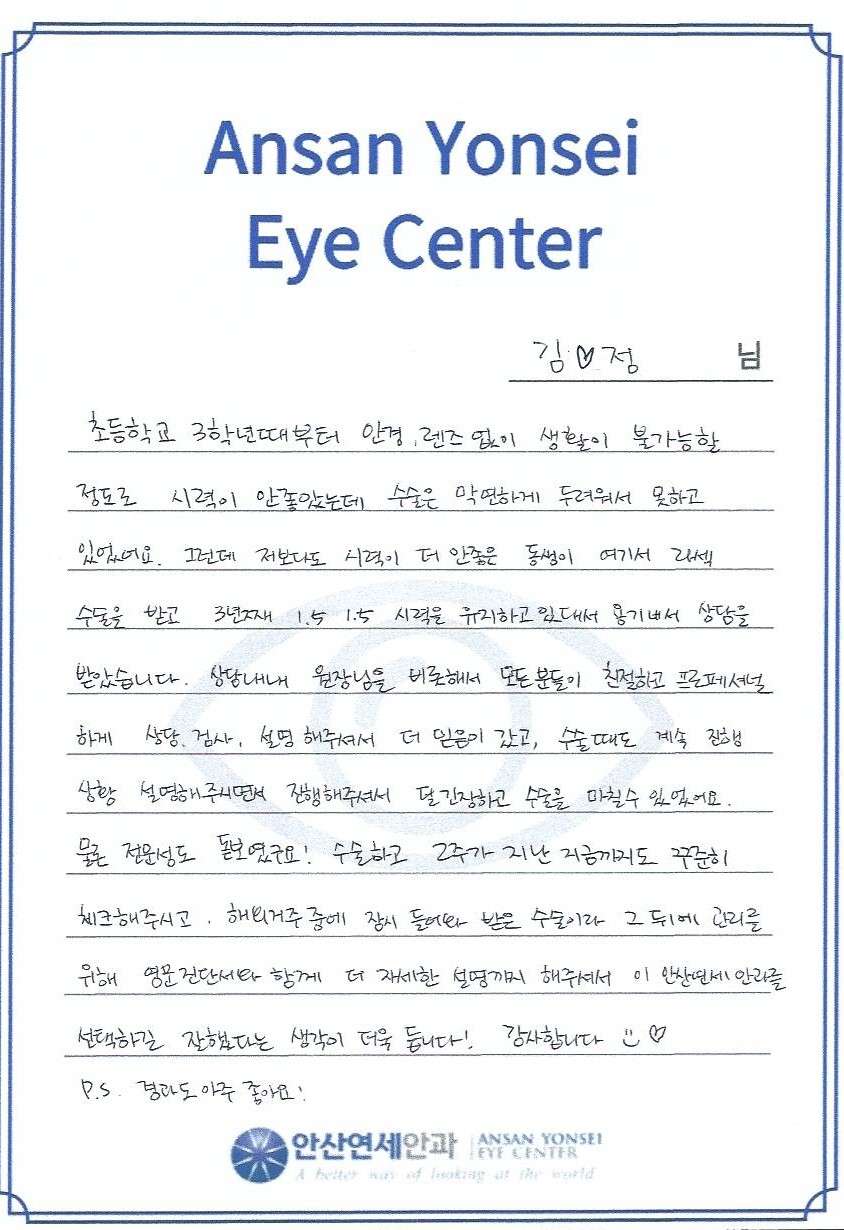 Ansan Yonsei
Eye Center
김♡정 님
초등학교 3학년때부터 안경, 렌즈 없이 생활이 불가능할
정도로 시력이 안좋았는데 수술은 막연하게 두려워서 못하고
있었어요. 그런데 저보다도 시력이 더 안좋은 동생이 여기서 라섹
수술을 받고 3년째 1.5 1.5 시력을 유지하고 있대서 용기내서 상담을
받았습니다. 상담내내 원장님을 비롯해서 모든분들이 친절하고 프로페셔널
하게 상담, 검사, 설명 해주셔서 더 믿음이 갔고, 수술때도 계속 진행
상황 설명해주시면서 진행해주셔서 덜 긴장하고 수술을 마칠수 있었어요.
물론 전문성도 돋보였구요! 수술하고 2주가 지난 지금까지도 꾸준히
체크해주시고, 해외거주 중에 잠시 들어와 받은 수술이라 그 뒤에 관리를
위해 영문진단서와 함께 더 자세한 설명까지 해주셔서 이 안산연세안과를
선택하길 잘했다는 생각이 더욱 듭니다! 감사합니다 ♡
P.S. 경과도 아주 좋아요!
안산연세안과 ANSAN YONSEI
EYE CENTER
A better way of looking at the world